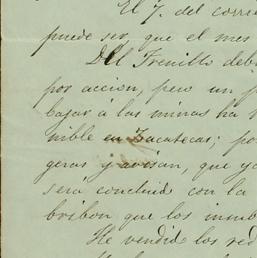 El 7. del corrie
puede ser, que el mes
Del Fresnillo deb
por accion, pero un p
bajar á las minas ha
nible en Zacatecas; po
geras y avisan, que ya
sera concluido con la
bribon que los insub
He vendido los red